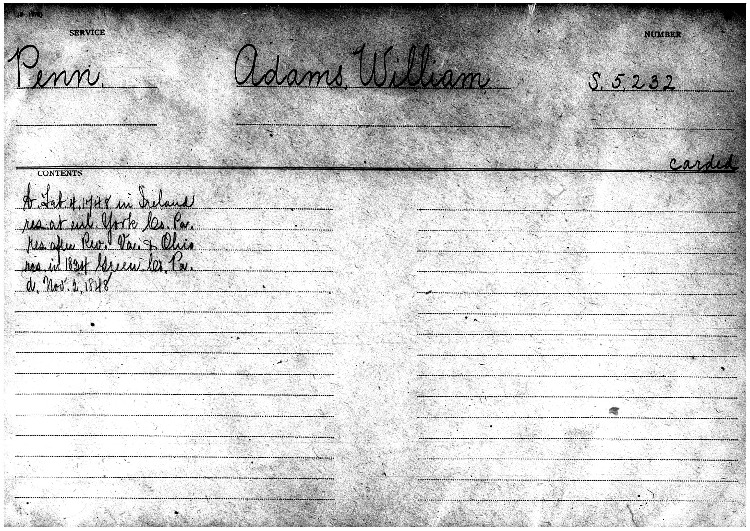 SERVICE
NUMBER
Penn.
Adams, William
S. 5,232
carded
CONTENTS
b. 4, 1748 in Ireland
res at enl. York Co. Pa.
Res after Rev. Va. & Ohio
res in 1834 Green Co. Pa.
d. Nov. 2, 1848